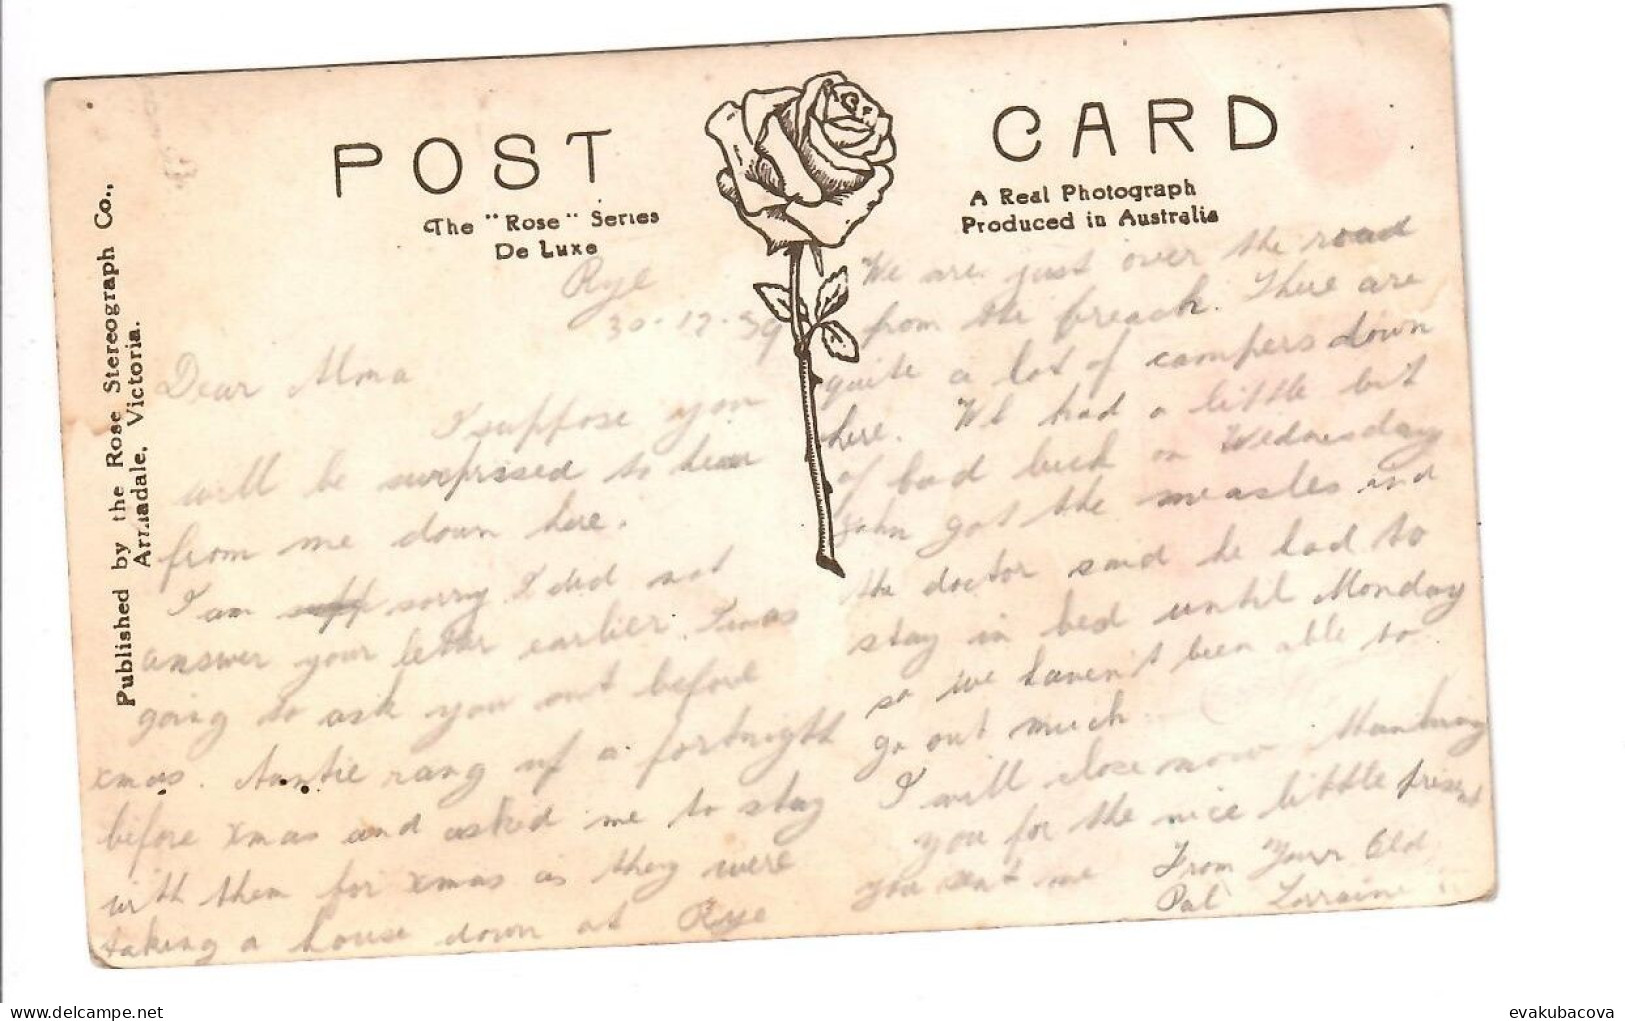 POST CARD
The "Rose" Series
De Luxe
A Real Photograph
Produced in Australia
Published by the Rose Stereograph Co.,
Armadale, Victoria.
Rye
30-12-39
Dear Alma
I suppose you
will be surprised to hear
from me down here.
I am sorry I did not
answer your letter earlier. I was
going to ask you out before
xmas. Auntie rang up a fortnight
before xmas and asked me to stay
with them for xmas as they were
taking a house down at Rye
We are just over the road
from the breach. There are
quite a lot of campers down
here. We had a little bit
of bad luck on Wednesday
John got the measles and
the doctor said he had to
stay in bed until Monday
so we haven't been able to
go out much.
I will close now thanking
you for the nice little present
you sent me From Your Old
Pal Lorraine
evakubacova